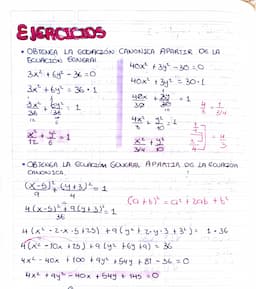 EJERCICIOS
• OBTENER LA ECUACIÓN CANONICA APARTIR DE LA
ECUACIÓN GENERAL
3x² + 6y² - 36 = 0
3x² + 6y² = 36 · 1
3x² + 6y² = 1
36 36
x² + y² = 1
12 6
40x² + 3y² - 30 = 0
40x² + 3y² = 30 · 1
30 30
4x² + y² = 1
3 10
x² + y² = 1
3/4 10
4 = 1
3 3/4
• OBTENER LA ECUACIÓN GENERAL APARTIR DE LA ECUACIÓN
CANONICA.
(x-5)² + (y+3)² = 1
9 4
(a+b)² = a² + 2ab + b²
4(x-5)² + 9(y+3)² = 1
36
4(x² - 2·x·5 + 25) + 9(y² + 2·y·3 + 3²) = 1 · 36
4(x² - 10x + 25) + 9(y² + 6y + 9) = 36
4x² - 40x + 100 + 9y² + 54y + 81 - 36 = 0
4x² + 9y² - 40x + 54y + 145 = 0